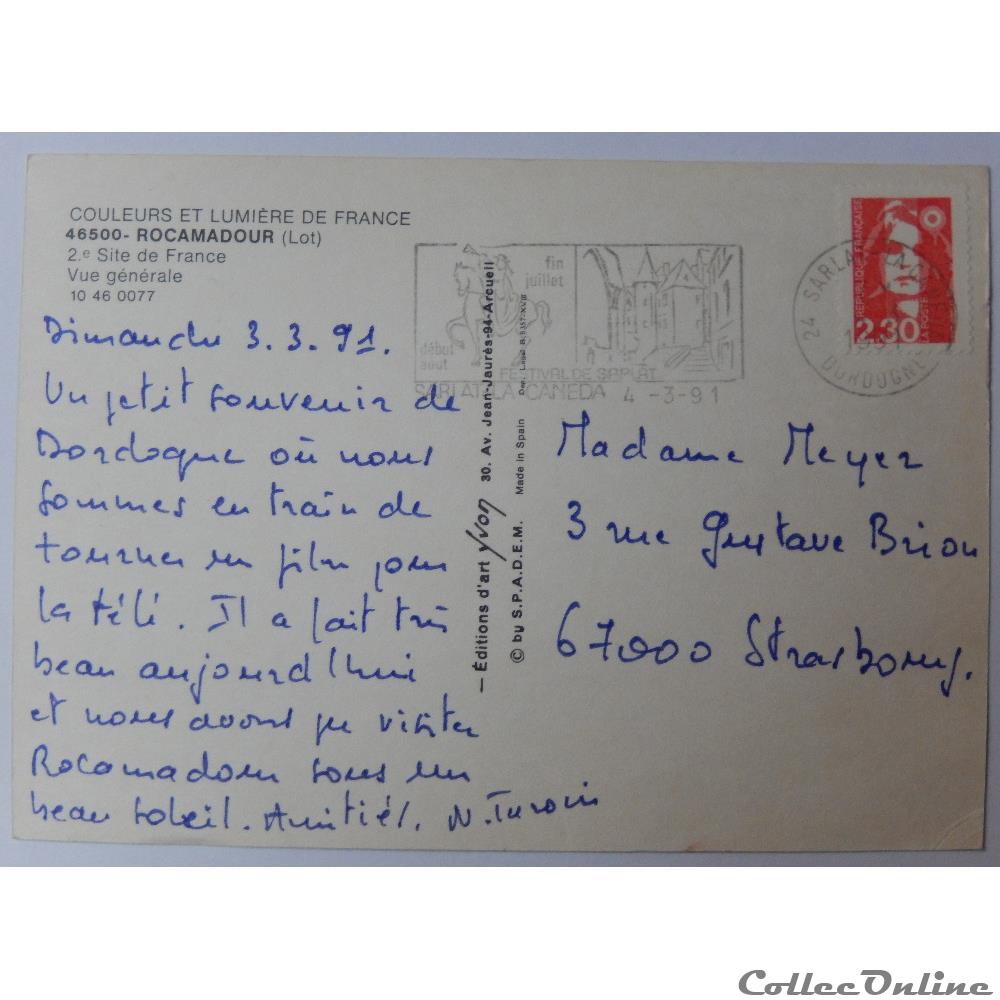 COULEURS ET LUMIÈRE DE FRANCE
46500- ROCAMADOUR (Lot)
2.e Site de France
Vue générale
10 46 0077
Dimanche 3.3.91.
Un petit souvenir de
Dordogne où nous
sommes en train de
tourner un film pour
la télé. Il a fait très
beau aujourd'hui
et nous avons pu visiter
Rocamadour sous un
beau soleil. Amitiés. N.
— Éditions d'art yvon 30. Av. Jean-Jaurès-94-Arcueil
© by S.P.A.D.E.M. Made in Spain
fin
juillet
début
août
FESTIVAL DE SARLAT
SARLAT-LA-CANEDA 4 -3-91
24 SARLAT
DORDOGNE
RÉPUBLIQUE FRANÇAISE
2,30
LA POSTE
Madame Meyer
3 rue Gustave Brion
67000 Strasbourg.
CollecOnline